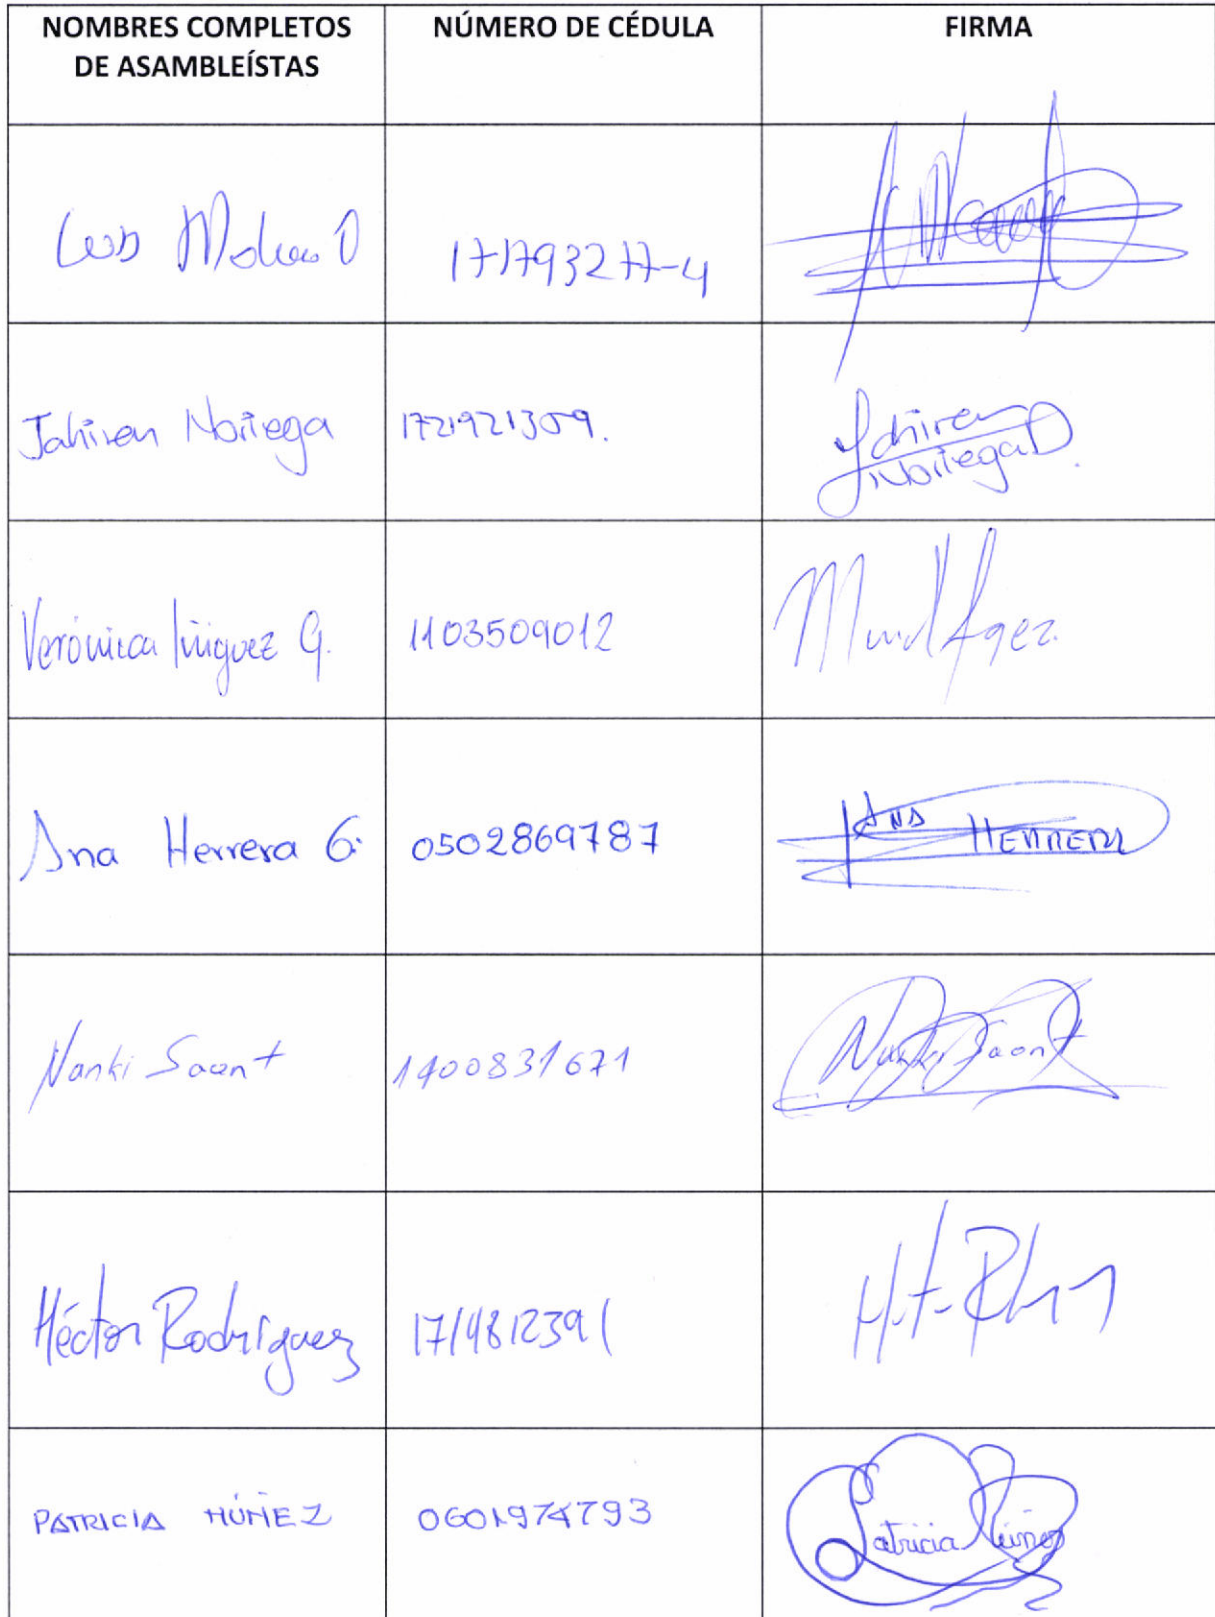 NOMBRES COMPLETOS
DE ASAMBLEÍSTAS
NÚMERO DE CÉDULA
FIRMA
Luis Molina O
171793277-4
Jahiren Noriega
1721921309.
Jahiren
Noriega D.
Verónica Iñiguez G.
1103509012
Ana Herrera G.
0502869787
Ana HERRERA
Nanki Saant
1400831671
Nanki Saant
Héctor Rodríguez
1714812391
PATRICIA NÚÑEZ
Patricia Núñez